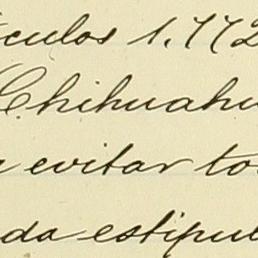 culos 1,772
Chihuahu
evitar to
da estipul